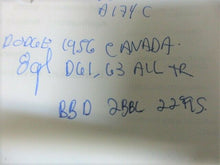 A174C
DODGE 1956 CANADA.
8cyl DG1, G3 ALL TR
BBD 2BBL 2295.